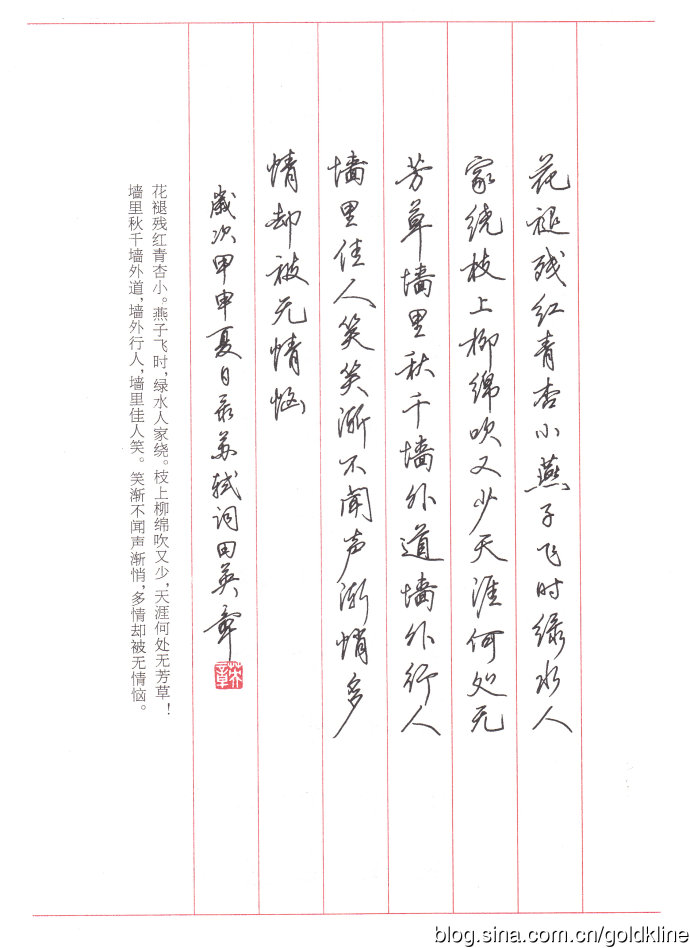 花褪残红青杏小燕子飞时绿水人
家绕枝上柳绵吹又少天涯何处无
芳草墙里秋千墙外道墙外行人
墙里佳人笑笑渐不闻声渐悄多
情却被无情恼
岁次甲申夏日录苏轼词田英章
英章
花褪残红青杏小。燕子飞时,绿水人家绕。枝上柳绵吹又少,天涯何处无芳草!
墙里秋千墙外道,墙外行人,墙里佳人笑。笑渐不闻声渐悄,多情却被无情恼。
blog.sina.com.cn/goldkline